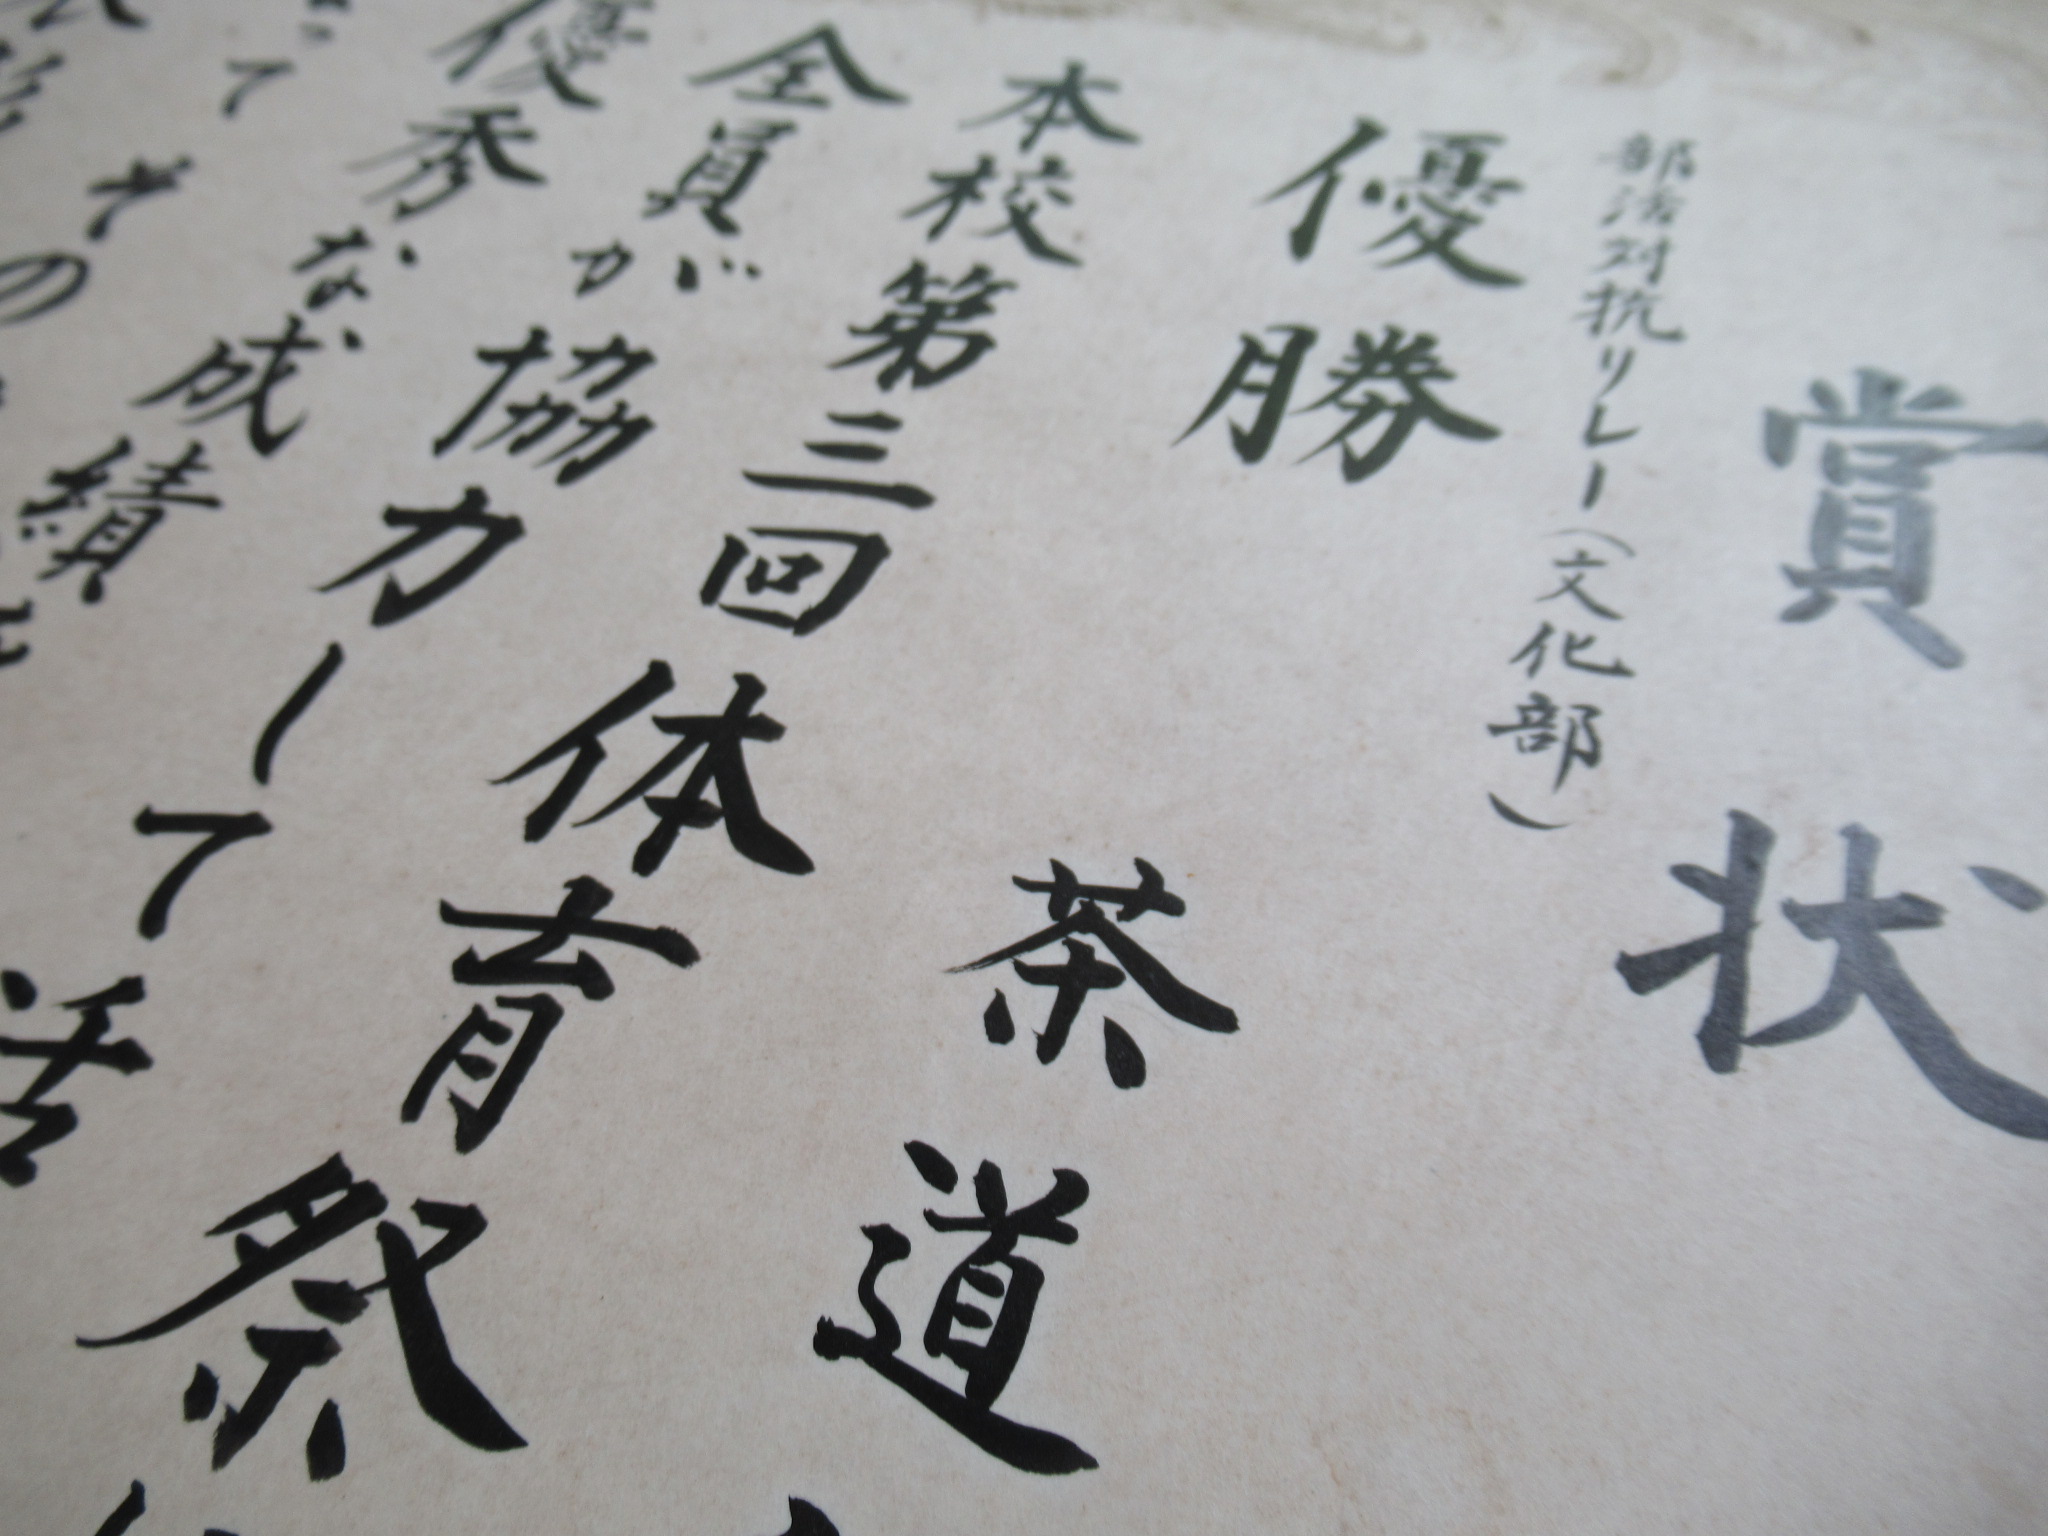 賞状
部活対抗リレー(文化部)
優勝
茶道
本校第三回体育祭
全員が協力して活
優秀な成績
って
その